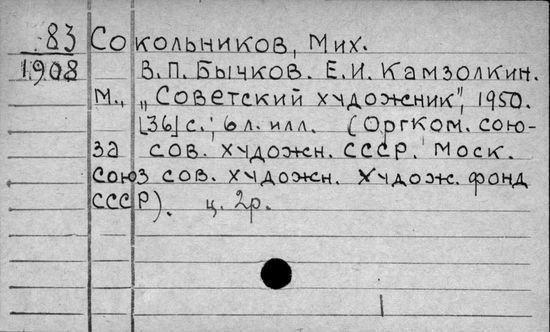 83 Сокольников, Мих.
1908 В.П. Бычков. Е.И. Камзолкин.
М., „Советский художник", 1950.
[36] с.; 6 л. илл. (Оргком. сою-
за сов. художн. СССР. Моск.
союз сов. художн. Худож. фонд
СССР). ц. 2р.